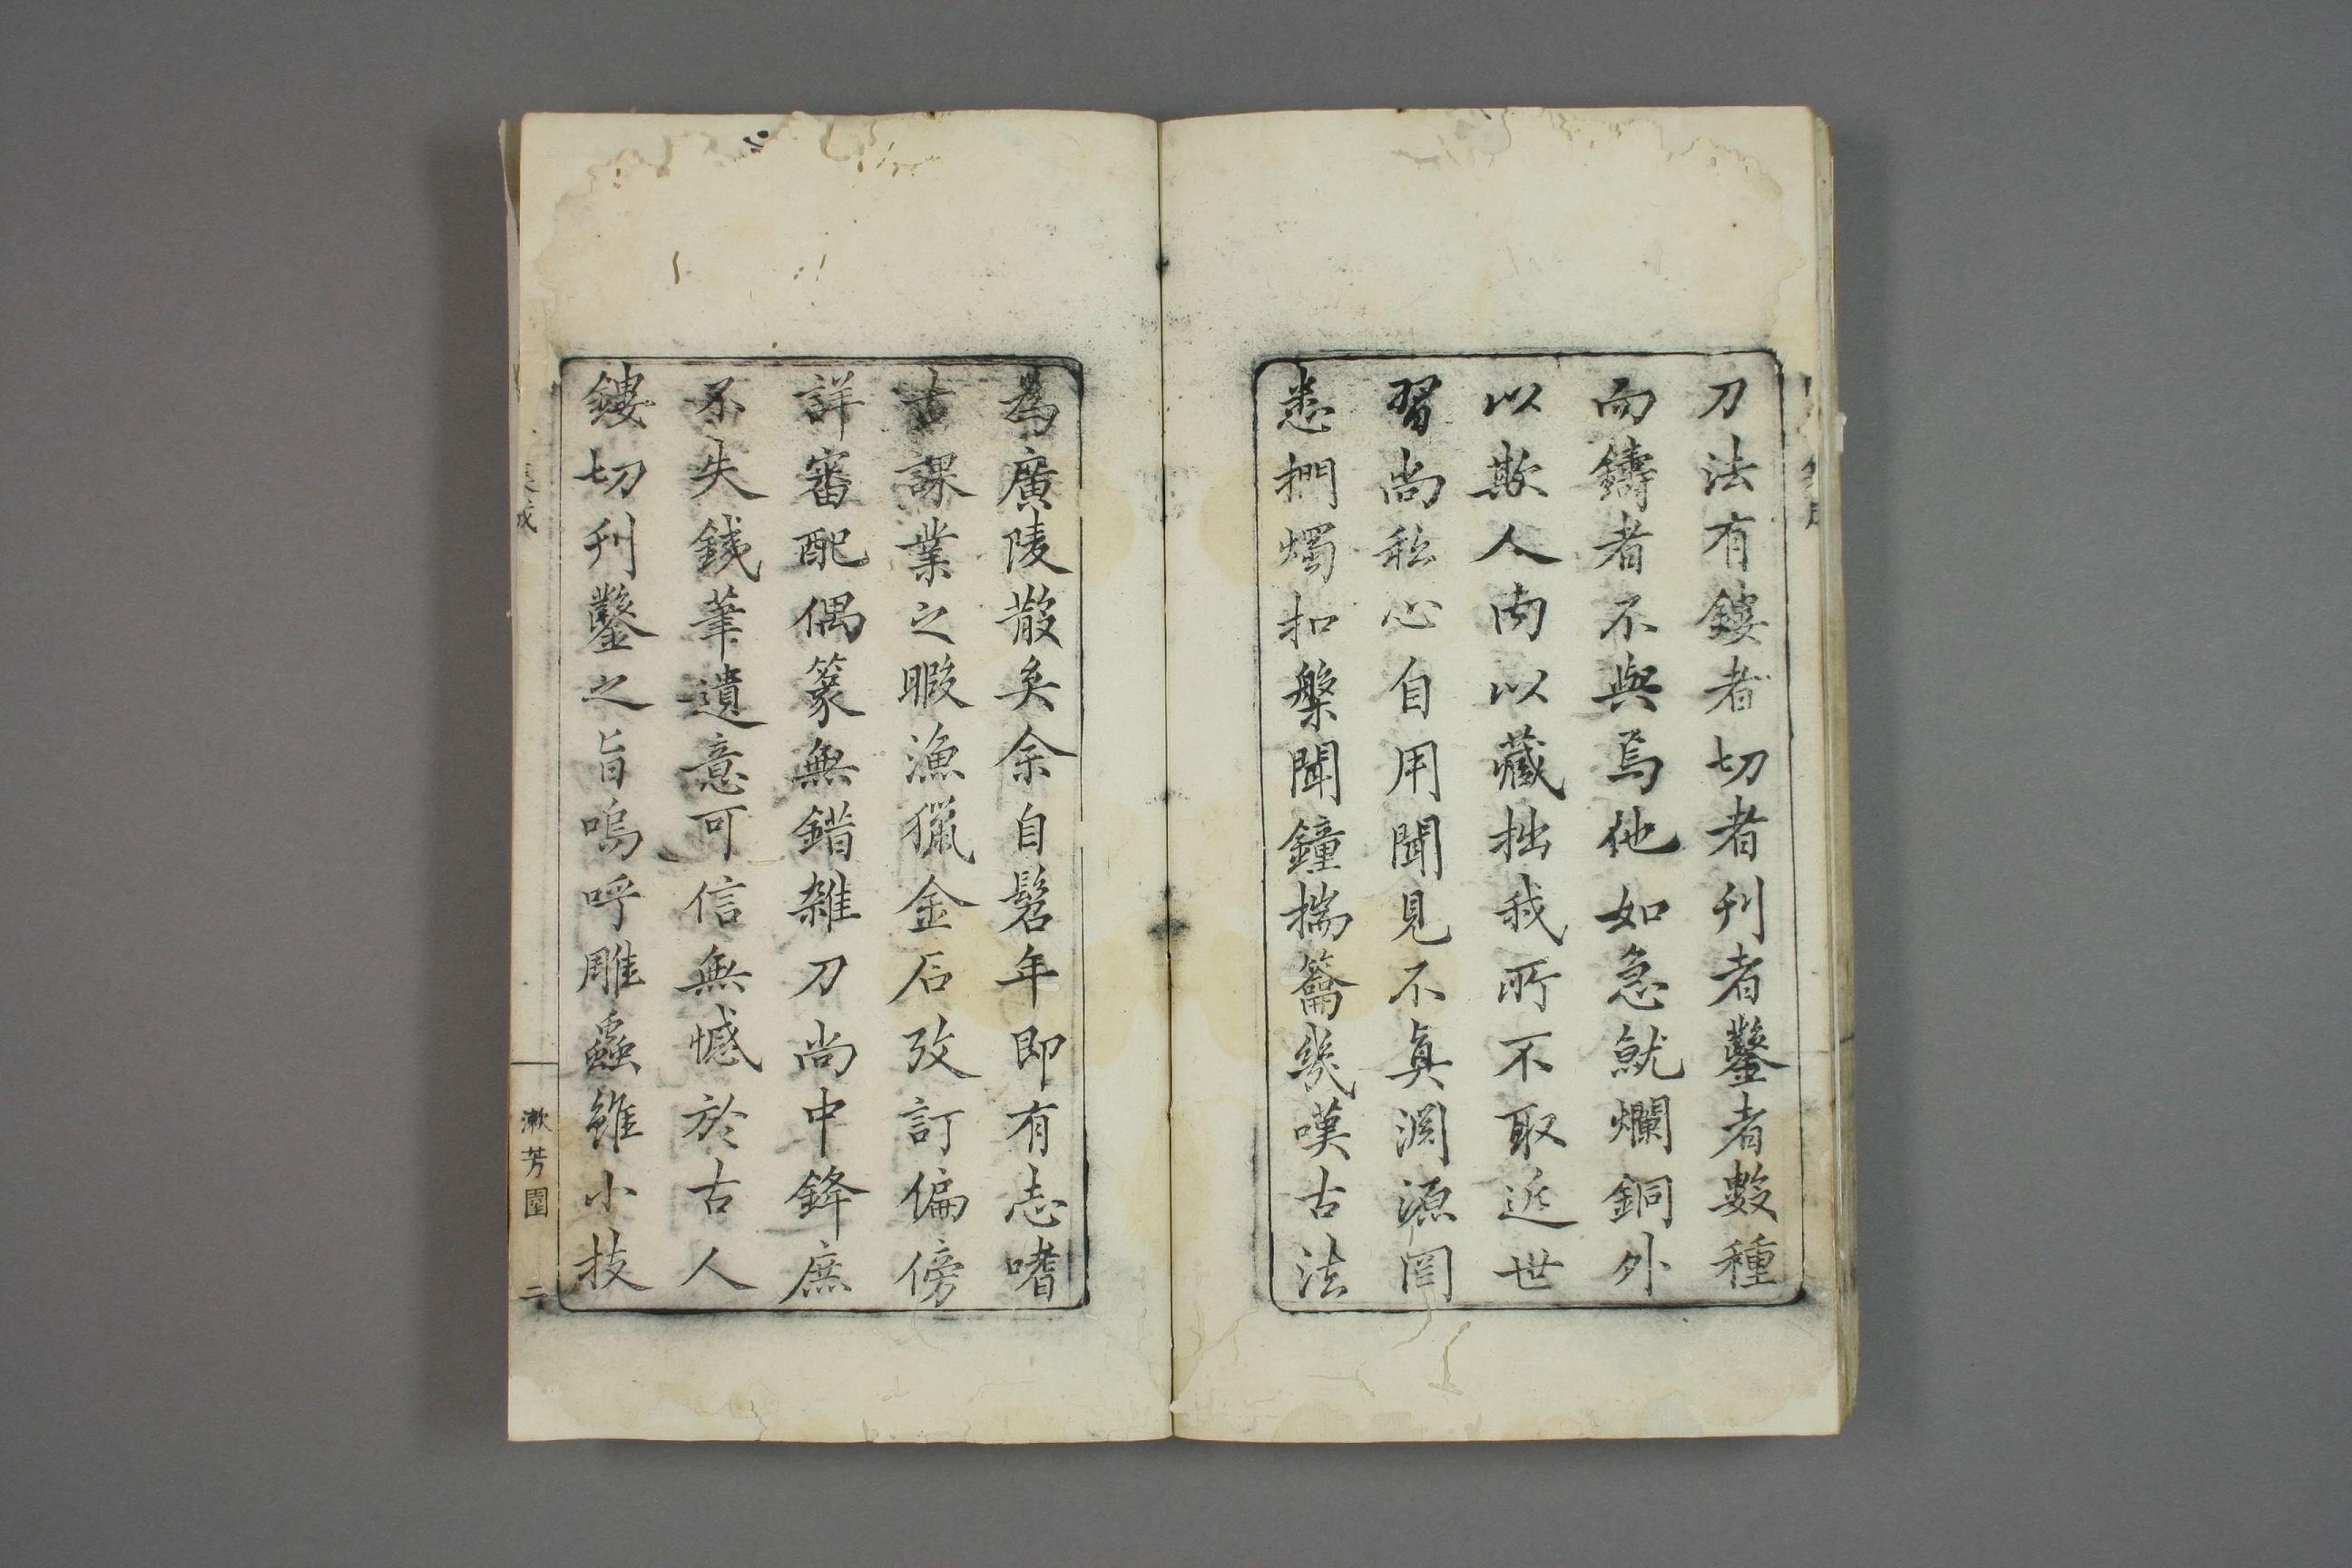 刀法有鏤者切者刋者鑿者數種
而鑄者不與焉他如急就爛銅外
以欺人內以藏拙我所不取近世
習尚私心自用聞見不真淵源罔
悉捫燭扣槃聞鐘揣籥幾嘆古法
為廣陵散矣余自髫年即有志嗜
古課業之暇漁獵金石攷訂偏傍
詳審配偶篆無錯雜刀尚中鋒庶
不失銭筆遺意可信無憾於古人
鏤切刋鑿之旨嗚呼雕蟲雖小技
漱芳園 二